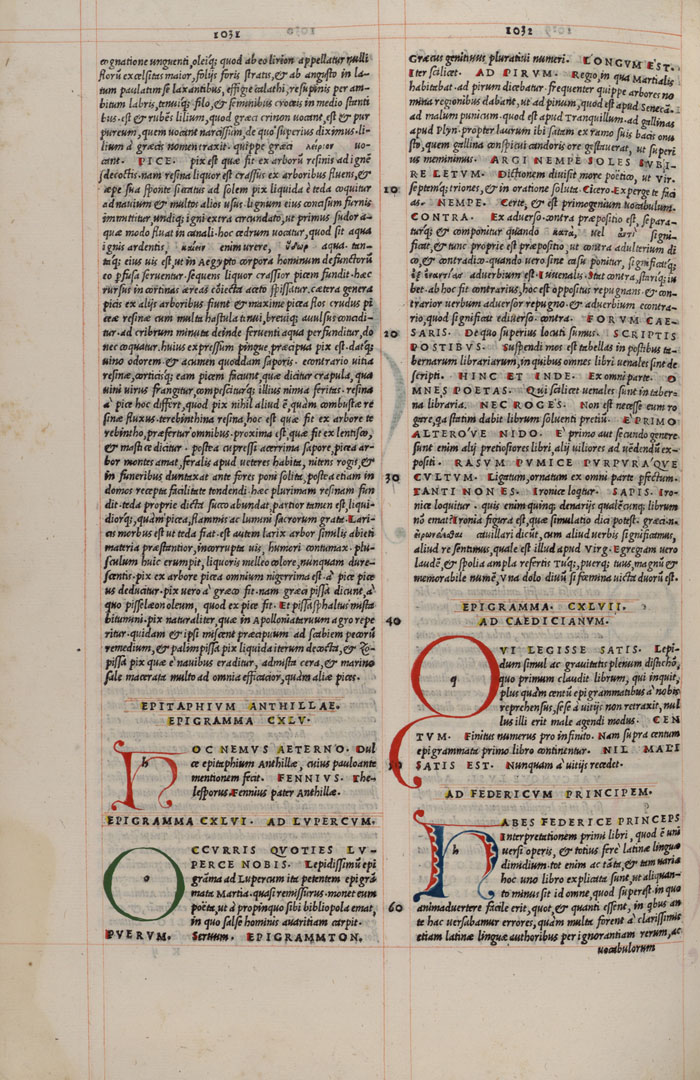 1031
cognatione unguenti, oleiq; quod ab eo lirion appellatur nulli
florũ excelsitas maior, folijs foris stratis, & ab angusto in la-
tum paulatim se laxantibus, effigie calathi, resupinis per am-
bitum labris, tenuiq; filo, & seminibus croceis in medio stanti
bus. est & rubẽs lilium, quod græci crinon uocant, est & pur
pureum, quem uocant narcissum, de quo superius diximus. li-
lium à græcis nomen traxit. quippe græci λείριον uo-
cant. PICE. pix est quæ fit ex arborũ resinis ad ignẽ
decoctis. nam resina liquor est crassus ex arboribus fluens, &
sæpe sua sponte siccatus ad solem pix liquida è teda coquitur
ad nauium & multos alios usus. lignum eius concisum furnis
immittitur, undiq; igni extra circundato, ut primus sudor a-
quæ modo fluat in canali. hoc cedrum uocatur, quod sit aqua
ignis ardentis καίειν enim urere, ὕδωρ aqua. tan-
taq; eius uis est, ut in Aegypto corpora hominum defunctorũ
eo perfusa seruentur. sequens liquor crassior picem fundit. hæc
rursus in cortinas æreas cõiecta aceto spissatur. cætera genera
picis ex alijs arboribus fiunt & maxime picea flos crudus pi
ceæ resinæ cum multa hastula tenui, breuiq; auulsus concidi-
tur. ad cribrum minute deinde feruenti aqua perfunditur, do
nec coquatur. huius expressum pingue præcipua pix est. datq;
uino odorem & acumen quoddam saporis. econtrario uitia
resinæ, corticisq; eam picem faciunt, quæ dicitur crapula, qua
uini uirus frangitur, compesciturq; illius nimia feritas. resina
à pice hoc differt, quod pix nihil aliud ẽ, quàm combustæ re
sinæ fluxus. terebinthina resina, hoc est quæ fit ex arbore te
rebintho, præfertur omnibus. proxima est, quæ fit ex lentisco,
& mastice dicitur. postea cupressi acerrima sapore, picea ar-
bor montes amat, feralis apud ueteres habita, nitens rogis, &
in funeribus duntaxat ante fores poni solita, postea etiam in
domos recepta facilitate tendendi. hæc plurimam resinam fun
dit. teda proprie dicta succo abundat, partior tamen est, liqui-
diorq; quàm picea, flammis ac lumini sacrorum grata. Lari-
cis morbus est ut teda fiat. est autem larix arbor similis abieti
materia præstantior, incorrupta uis, humori contumax. plu-
sculum huic erumpit, liquoris melleo colore, nunquam dure-
scentis. pix ex arbore picea omnium nigerrima est. à pice pice
us deducitur. pix uero à græco fit. nam græci pissã dicunt, à
quo pisselæon oleum, quod ex pice fit. Et pissasphaltus mista
bitumini. pix naturaliter, quæ in Apolloniatarum agro repe
ritur. quidam & ipsi miscent præcipuum ad scabiem pecorũ
remedium, & palimpissa pix liquida iterum decocta, & zo-
pissa pix quæ è nauibus eraditur, admista cera, & marino
sale macerata multo ad omnia efficacior, quàm aliæ pices.
EPITAPHIVM ANTHILLAE.
EPIGRAMMA CXLV.
h
OC NEMVS AETERNO. Dul
ce epitaphium Anthillæ, cuius paulo ante
mentionem fecit. FENNIVS. The-
lesphorus Fennius pater Anthillæ.
EPIGRAMMA CXLVI. AD LVPERCVM.
o
CCVRRIS QVOTIES LV-
PERCE NOBIS. Lepidissimũ epi
grãma ad Lupercum ita petentem epigrã
mata Martia. quasi remissurus. monet eum
poeta, ut à propinquo sibi bibliopola emat,
in quo salse hominis auaritiam carpit.
PVERVM. Seruum. EPIGRAMMTON.
1032
Græcus genitiuus pluratiui numeri. LONGVM EST.
Iter scilicet. AD PIRVM. Regio, in qua Martialis
habitabat. ad pirum dicebatur. frequenter quippe arbores no
mina regionibus dabant, ut ad pinum, quod est apud Senecã.
ad malum punicum. quod est apud Tranquillum. ad gallinas
apud Plyn. propter laurum ibi satam ex ramo suis bacis onu
sto, quem gallina conspicui candoris ore gestauerat, ut superi
us meminimus. ARGI NEMPE SOLES SVBI-
RE LETVM. Dictionem diuisit more poetico, ut Vir.
10
septemq; triones, & in oratione soluta. Cicero. Experge te faci
as. NEMPE. Certe, & est primogenium uocabulum.
CONTRA. Ex aduerso. contra præpositio est, separa-
turq; & componitur quando κατὰ, uel ἀντὶ signi-
ficat, & tunc proprie est præpositio, ut contra adulterium di
co, & contradico. quando uero sine casu ponitur, significatq;
ἐξ ἐναντίας aduerbium est. Iuuenalis. Stat contra, stariq; iu
bet. ab hoc fit contrarius, hoc est oppositus repugnans. & con-
trarior uerbum aduersor repugno. & aduerbium econtra-
rio, quod significat ediuerso. contra. FORVM CAE-
20
SARIS. De quo superius locuti sumus. SCRIPTIS
POSTIBVS. Suspendi mos est tabellas in postibus ta-
bernarum librariarum, in quibus omnes libri uenales sint de
scripti. HINC ET INDE. Ex omni parte. O
MNES POETAS. Qui scilicet uenales sunt in taber-
na libraria. NEC ROGES. Non est necesse eum ro
gare, ga statim dabit librum soluenti pretiũ. E PRIMO
ALTEROVE NIDO. E primo aut secundo genere.
sunt enim alij pretiosiores libri, alij uiliores ad uẽdendũ ex-
positi. RASVM PVMICE PVRPVRAQVE
30
CVLTVM. Ligatum, ornatum ex omni parte pfectum.
TANTI NON ES. Ironice legitur. SAPIS. Iro-
nice loquitur. quis enim quinq; denarijs qualẽcunq; librum
nõ emat? Ironia figura est, quæ simulatio dici potest. græci.n.
εἰρωνεύεσθαι cauillari dicũt, cum aliud uerbis significamus,
aliud re sentimus, quale est illud apud Virg. Egregiam uero
laudẽ, & spolia ampla refertis Tuq; puerq; tuus, magnũ &
memorabile numẽ, Vna dolo diuũ si fœmina uicta duorũ est.
EPIGRAMMA. CXLVII.
40
AD CAEDICIANVM.
q
VI LEGISSE SATIS. Lepi-
dum simul ac grauitatis plenum distichõ,
quo primum claudit librum, qui inquit,
plus quàm centũ epigrammatibus à nobis
reprehensus, sese à uitijs non retraxit, nul
lus illi erit male agendi modus. CEN
TVM. Finitus numerus pro infinito. Nam supra centum
epigrammata primo libro continentur. NIL MALI
50
SATIS EST. Nunquam à uitijs recedet.
AD FEDERICVM PRINCIPEM.
h
ABES FEDERICE PRINCEPS
Interpretationem primi libri, quod ẽ uni
uersi operis, & totius fere latinæ linguæ
dimidium. tot enim ac tãta, & tam uaria
hoc uno libro explicata sunt, ut aliquan-
to minus sit id omne, quod superest. in quo
60
animaduertere facile erit, quot, & quanti essent, in qbus an
te hac uersabamur errores, quàm multa forent à clarissimis
etiam latinæ linguæ authoribus per ignorantiam rerum, ac
uocabulorum